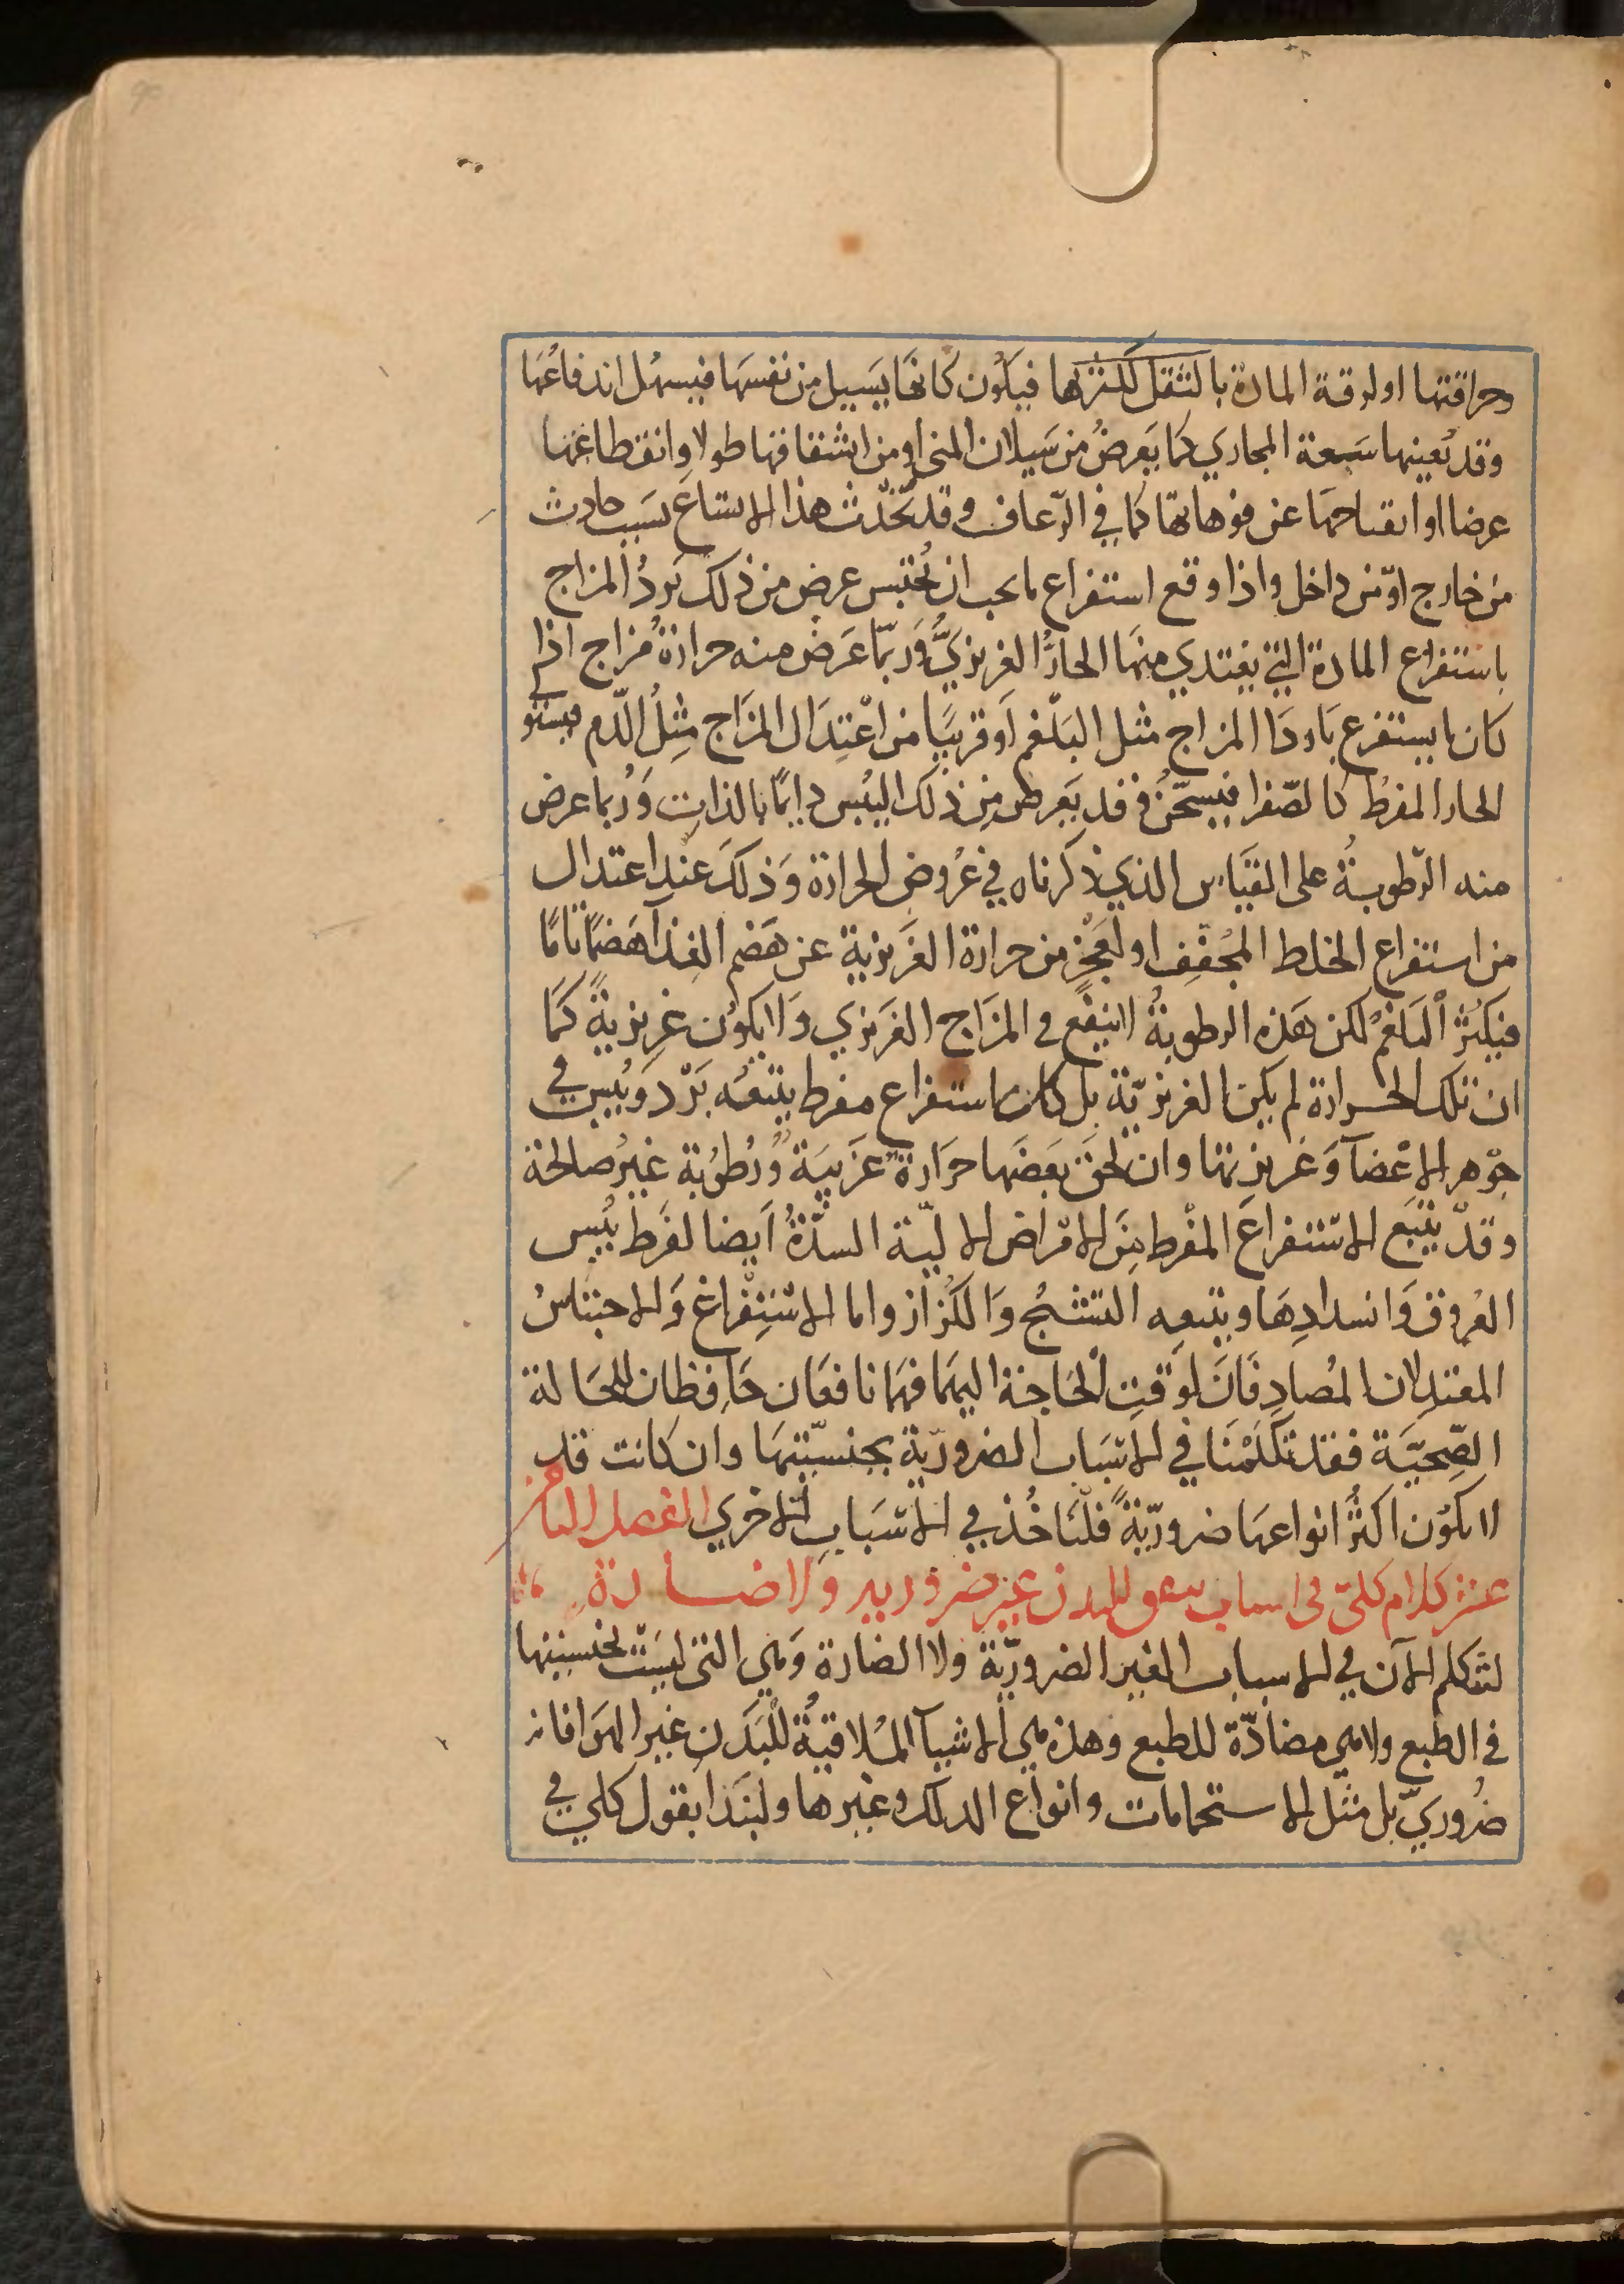 وحراقتها او لرقة المادة بالثقل لكثرتها فيكون كانها يسيل من نفسها فيسهل اندفاعها
وقد تعينها سعة المجاري كما يعرض من سيلان المني او من انشقاقها طولا وانقطاعها
عرضا او انفتاحها عن فوهاتها كما في الرعاف وقد تحدث هذا الاتساع بسبب حادث
من خارج او من داخل واذا وقع استفراغ ما يجب ان يحتبس عرض من ذلك برد المزاج
باستفراغ المادة التي يغتدي منها الحار الغريزي وربما عرض منه حرارة مزاج اذا
كان ما يستفرغ بارد المزاج مثل البلغم او قريبا من اعتدال المزاج مثل الدم فيستو
الحار المفرط كالصفرا فيسخن وقد يعرض من ذلك اليبس دايما بالذات وربما عرض
منه الرطوبة على القياس الذي ذكرناه في عروض الحرارة وذلك عند اعتدال
من استفراغ الخلط المجفف او لعجز من حرارة الغريزية عن هضم الغذا هضما تاما
فيكثر البلغم لكن هذه الرطوبة لا ينفع في المزاج الغريزي ولا يكون غريزية كما
ان تلك الحرارة لم يكن الغريزية بل كان استفراغ مفرط يتبعه برد ويبس في
جوهر الاعضآ وغريزتها وان لحق بعضها حرارة غريبة ورطوبة غير صالحة
وقد يتبع الاستفراغ المفرط من الامراض الالية السدة ايضا لفرط يبس
العروق وانسدادها ويتبعه التشنج والكزاز واما الاستفراغ والاحتباس
المعتدلان المصادفان لوقت الحاجة اليهما فهما نافعان حافظان للحالة
الصحية فقد تكلمنا في الاسباب الضرورية بجنسيتها وان كانت قد
لا يكون اكثر انواعها ضرورية فلناخذ في الاسباب الاخري الفصل الثامن
عشر كلام كلي في اسباب تتفق للبدن غير ضرورية ولا ضارة
لنتكلم الآن في الاسباب الغير الضرورية ولا الضارة وهي التي ليست بجنسيتها
في الطبع ولا هي مضادة للطبع وهذه هي الاشيآ الملاقية للبدن غير الهوا فانه
ضروري بل مثل الاستحمامات وانواع الدلك وغيرها ولنبدا بقول كلي في